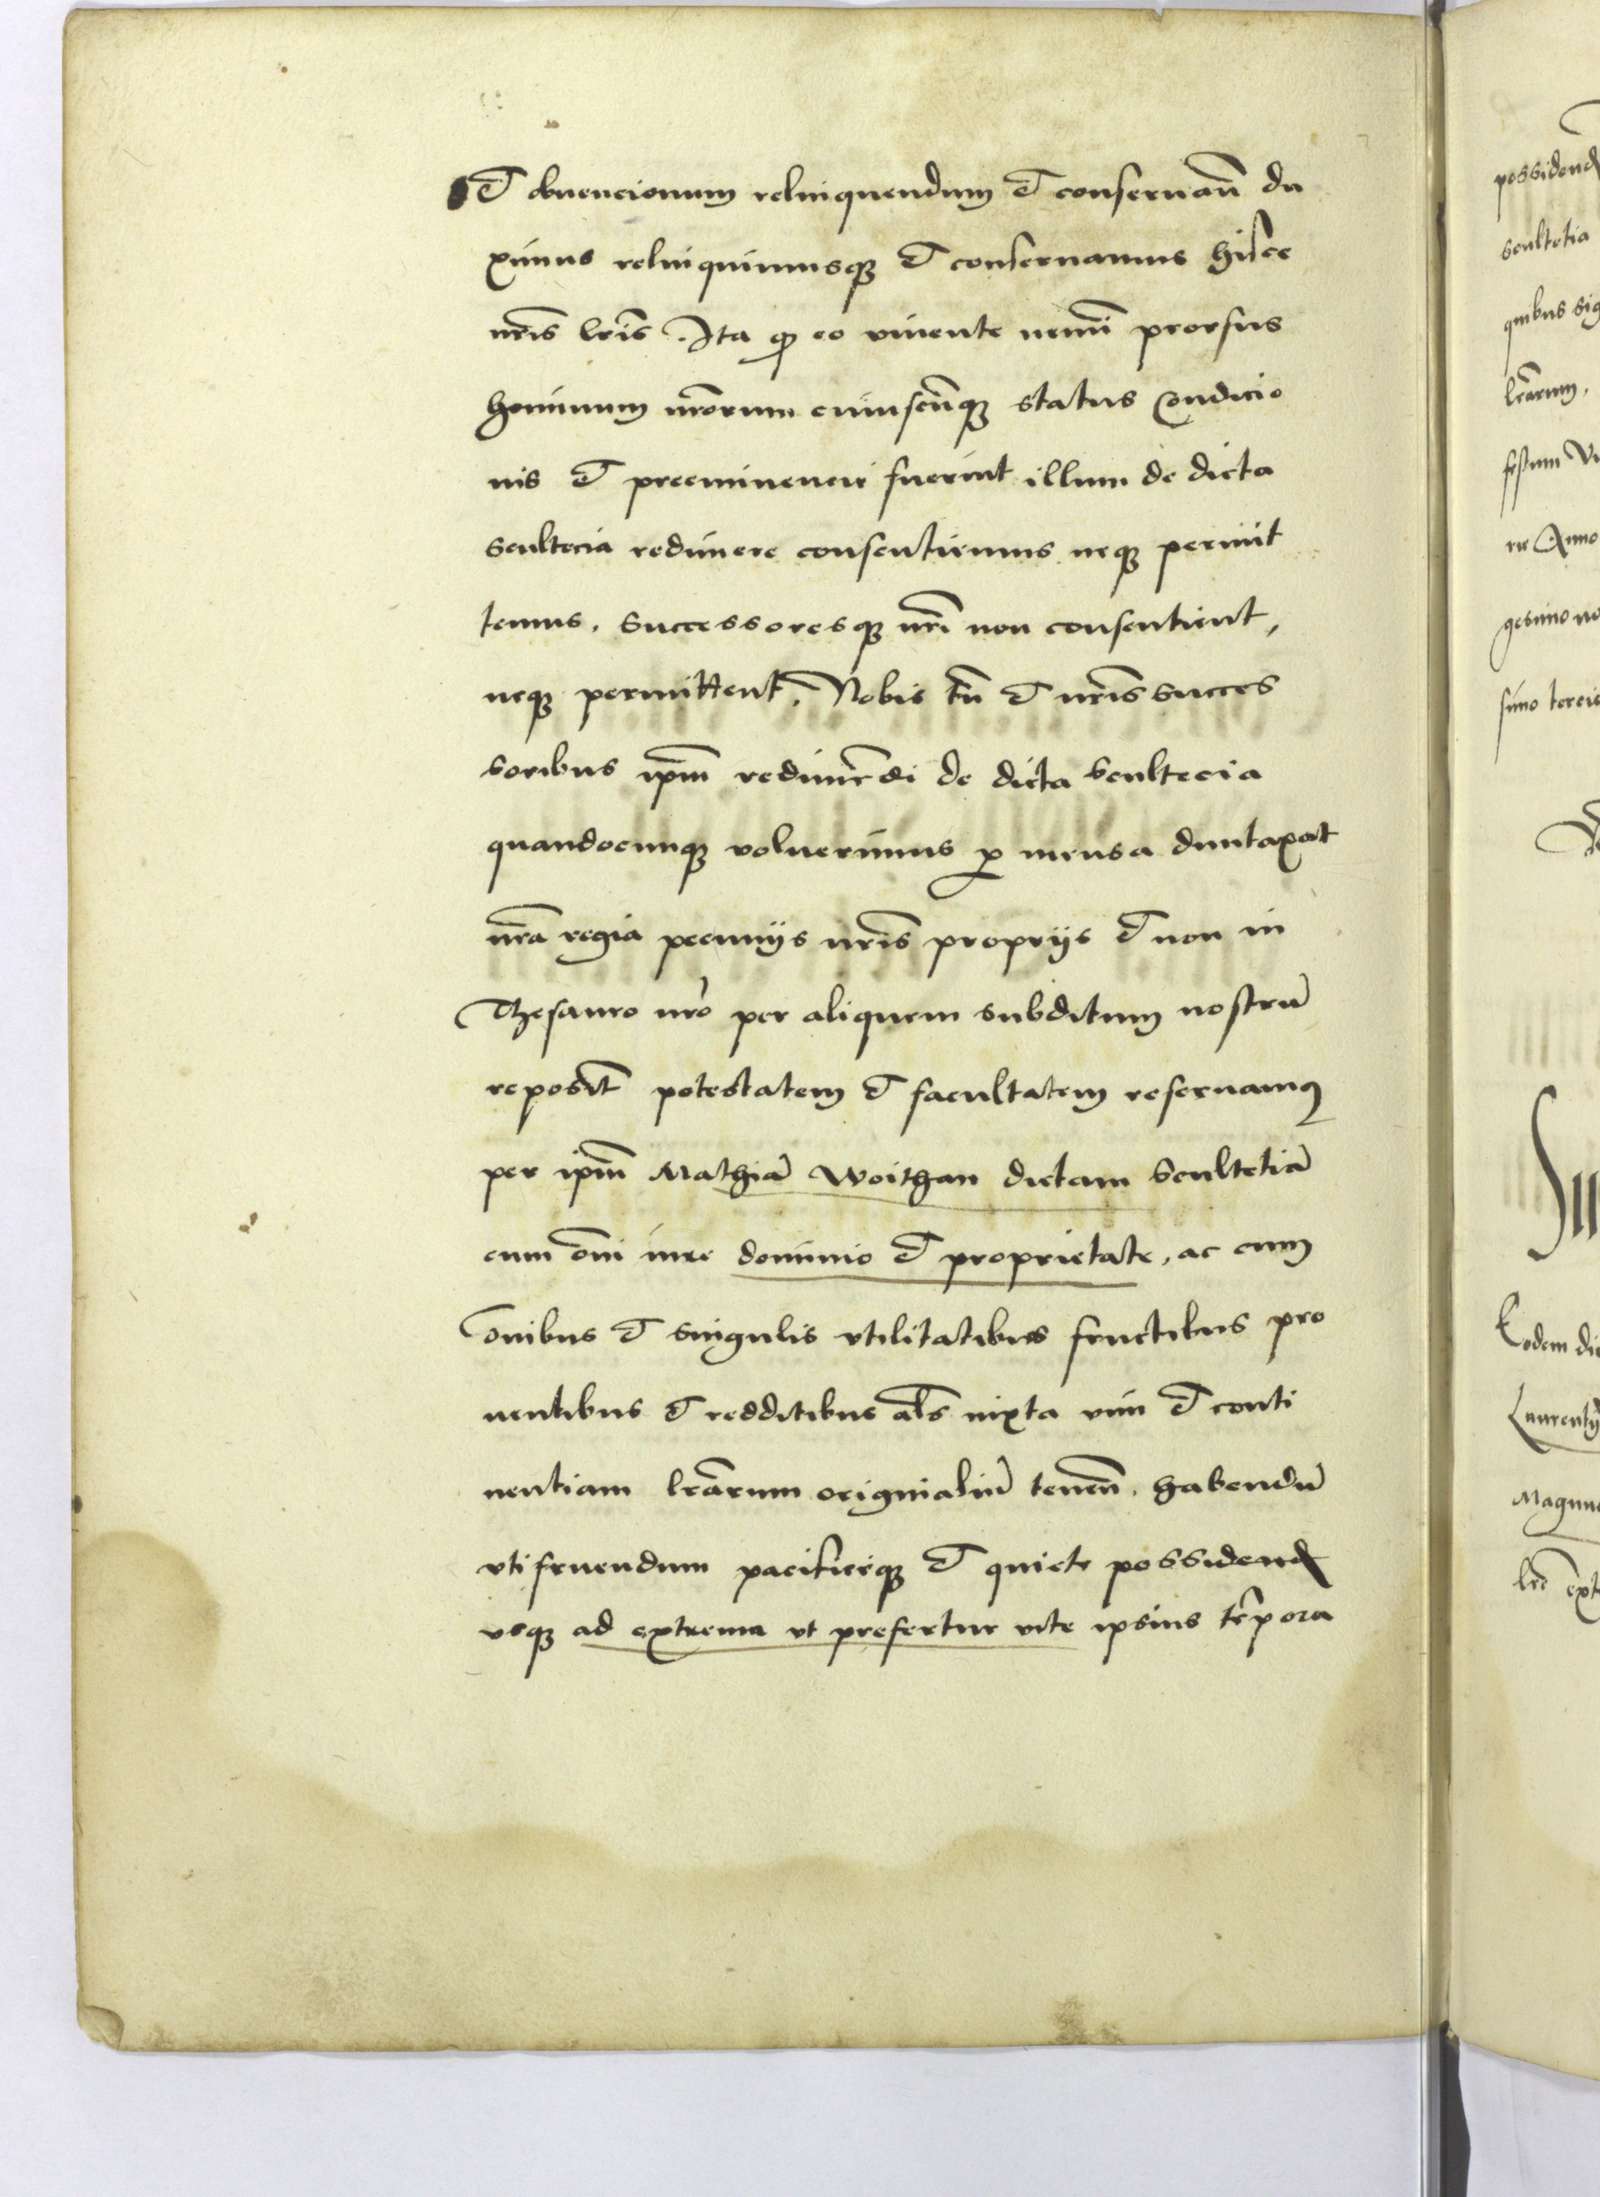 et obuencionum relinquendum et conseruan̄ du
ximus relinquimusqꝫ et conseruamus hisce
nr̄is lr̄is. Ita ꝙ eo viuente nemini prorsus
hominum nr̄orum cuiuscūqꝫ status condicio
nis et preeminencie fuerint illum de dicta
scultecia redimere consentiemus neqꝫ permit
temus. Successoresqꝫ nr̄i non consentient,
neqꝫ permittent. Nobis tn̄ et nr̄is succes
soribus ip̄m redimēdi de dicta scultecia
quandocunqꝫ voluerimus ꝓ mensa duntaxat
nr̄a regia pecunijs nr̄is proprijs et non in
Thesauro nr̄o per aliquem subditum nostrū
reposit̄ potestatem et facultatem reseruamꝰ
per ip̄m Mathiā Woithan dictam Scultetiā
cum om̄i iure dominio et proprietate, ac cum
om̄ibus et singulis vtilitatibus fructibus pro
uentibus et redditibus al̄s iuxta vim et conti
nentiam lr̄arum originaliū tenen̄. habendū
vtifruendum pacificeqꝫ et quiete possidend
vsqꝫ ad extrema vt prefertur vite ipsius tēpora
possidend
scultetia
quibus sig
lr̄arum.
festum
Anno
gesimo
simo
Eodem di
Laurentij